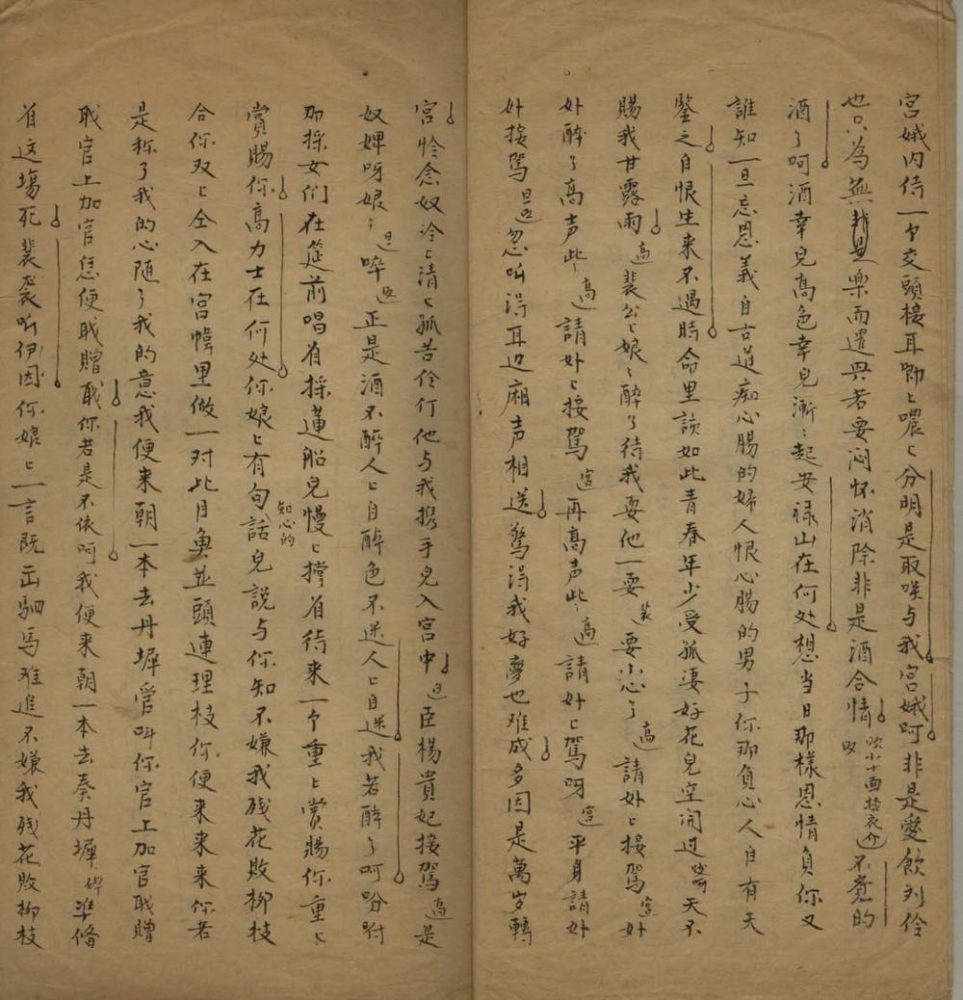 宮娥内侍一个交頭接耳唧〻噥〻分明是取咲与我宮娥呵非是愛飲刘伶
也只為無甚樂而遣興若要闷怀消除非是酒合情 吹小十面 不覚的
酒了呵酒幸兒高色幸兒漸〻起安禄山在何处想当日那樣恩情負你又
誰知一旦忘恩義自古道痴心腸的婦人恨心腸的男子你那負心人自有天
鑒之自恨生来不遇時命里該如此青春年少受孤淒好花兒空闲过 天不
賜我甘露雨 高 裴公〻娘〻醉了待我耍他一耍 裴 要小心了 高 請外〻接駕 宮 外
外醉了高声此〻 高 請外〻接駕 宮 再高声此〻 高 請外〻駕呀 宮 平身請外
外接駕 旦 忽听得耳边廂声相送驚得我好夢也难成多因是萬岁轉
宮怜念奴冷〻清〻孤苦伶仃他与我携手兒入宮中 旦 臣楊貴妃接駕 高 是
奴婢呀娘〻 旦 啐 正是酒不醉人〻自醉色不迷人〻自迷我若醉了呵吩咐
那採女们在筵前唱有採蓮船兒慢〻撑有待来一个重〻賞賜你重〻
賞賜你高力士在何处你娘〻有句知心的話兒説与你知不嫌我残花敗柳枝
合你双〻仝入在宮幃里做一对比目奥並頭連理枝你便来来来你若
是称了我的心随了我的意我便来朝一本去丹墀管叫你官上加官职贈
职官上加官恁便职贈职你若是不依呵我便来朝一本去奏丹墀 準备
有这場死裴裴听伊因何娘〻一言既出驷馬难追不嫌我残花敗柳枝